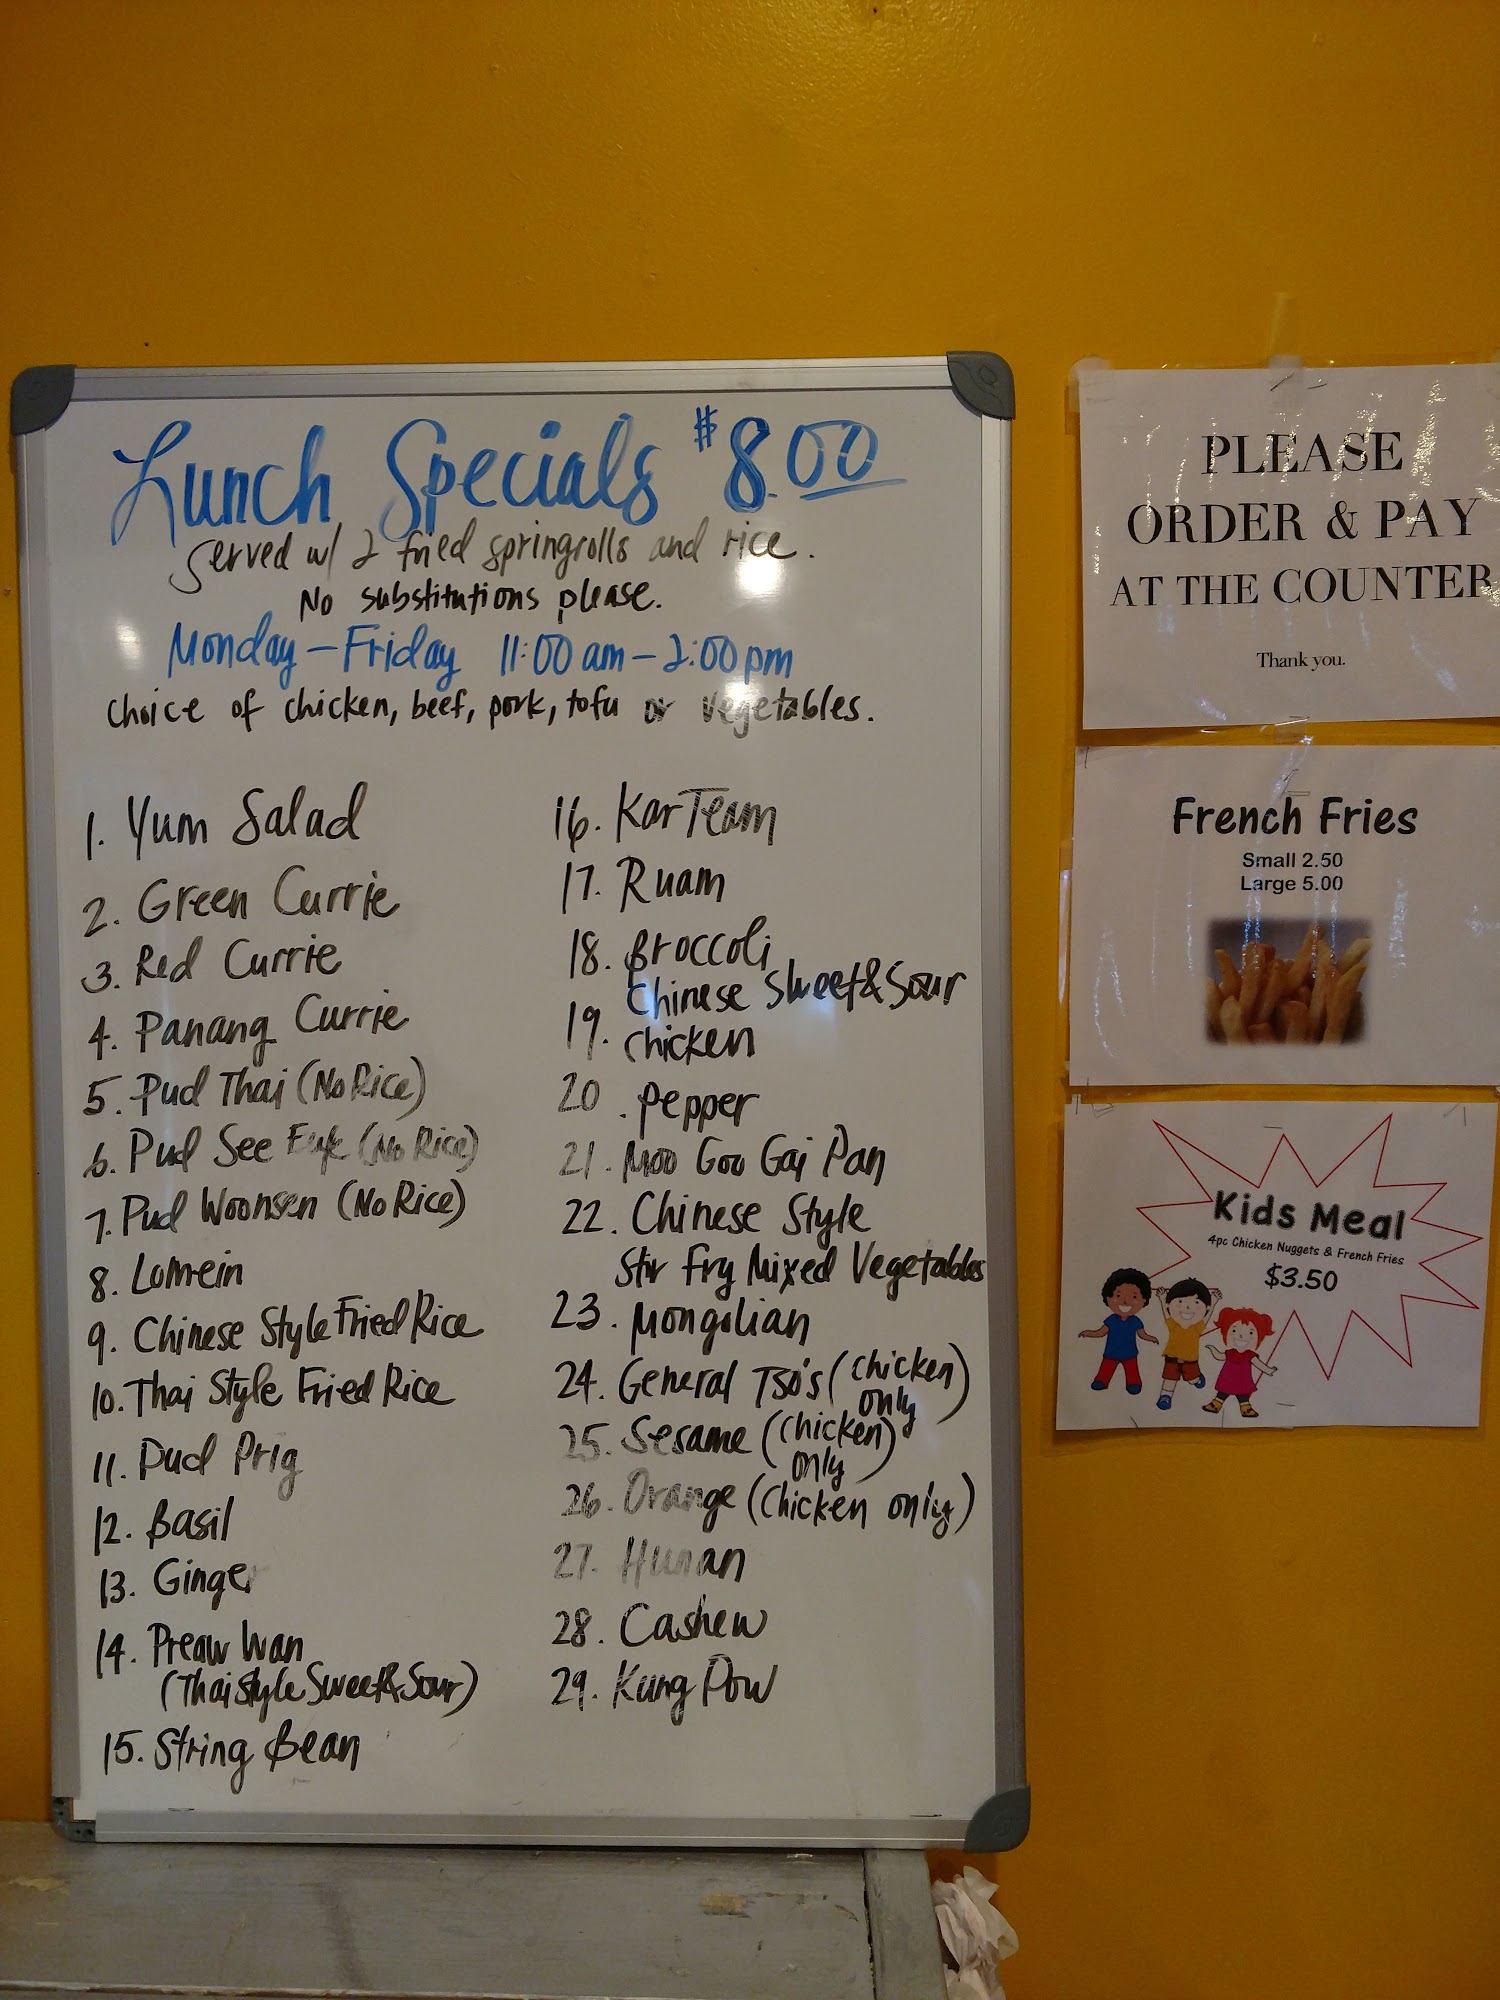 Lunch Specials $8.00
Served w/ 2 fried springrolls and rice.
No substitutions please.
Monday - Friday 11:00 am - 2:00 pm
Choice of chicken, beef, pork, tofu or vegetables.
1. Yum Salad
2. Green Currie
3. Red Currie
4. Panang Currie
5. Pud Thai (No Rice)
6. Pud See (No Rice)
7. Pud Woonsen (No Rice)
8. Lomein
9. Chinese Style Fried Rice
10. Thai Style Fried Rice
11. Pud Prig
12. Basil
13. Ginger
14. Preaw Wan
(Thai Style Sweet & Sour)
15. String Bean
16. Kar Team
17. Ruam
18. Broccoli
19. Chinese Sweet & Sour
Chicken
20. Pepper
21. Moo Goo Gai Pan
22. Chinese Style
Stir Fry Mixed Vegetables
23. Mongolian
24. General Tso's (Chicken
only)
25. Sesame (Chicken)
only
26. Orange (Chicken only)
27. Hunan
28. Cashew
29. Kung Pow
PLEASE
ORDER & PAY
AT THE COUNTER
Thank you.
French Fries
Small 2.50
Large 5.00
Kids Meal
4pc Chicken Nuggets & French Fries
$3.50